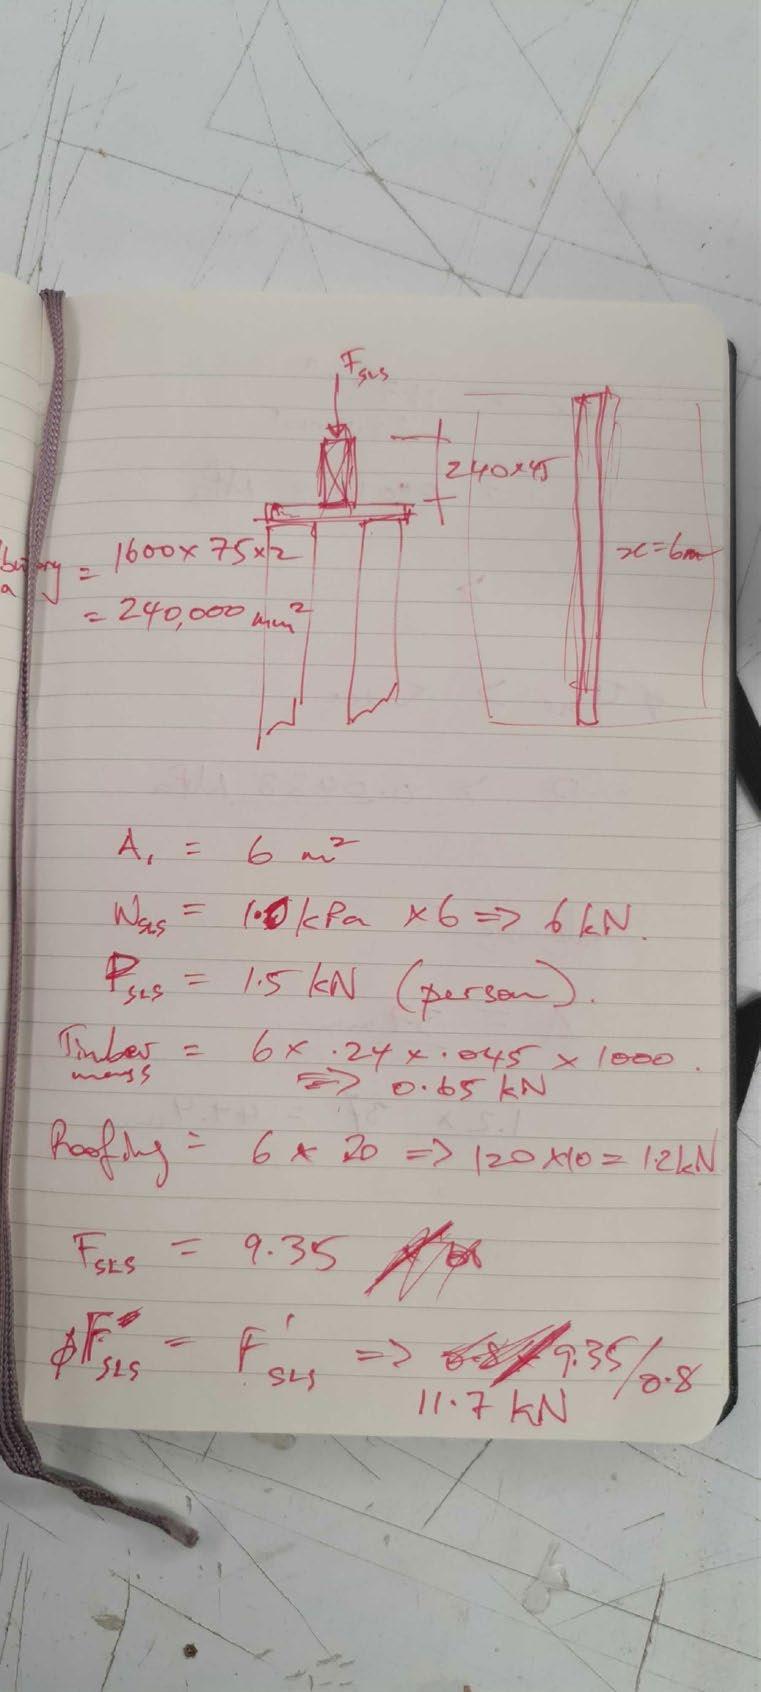 F SLS
240x45
x=6m
= 1600 x 75 x 2
= 240,000 mm²
A₁ = 6 m²
W SLS = 1.0 kPa x 6 => 6 kN.
P SLS = 1.5 kN (person).
Timber mass = 6 x .24 x .045 x 1000.
=> 0.65 kN
Roofing = 6 x 20 => 120 x 10 = 1.2 kN
F SLS = 9.35
ϕF SLS = F' SLS => 9.35/0.8
11.7 kN